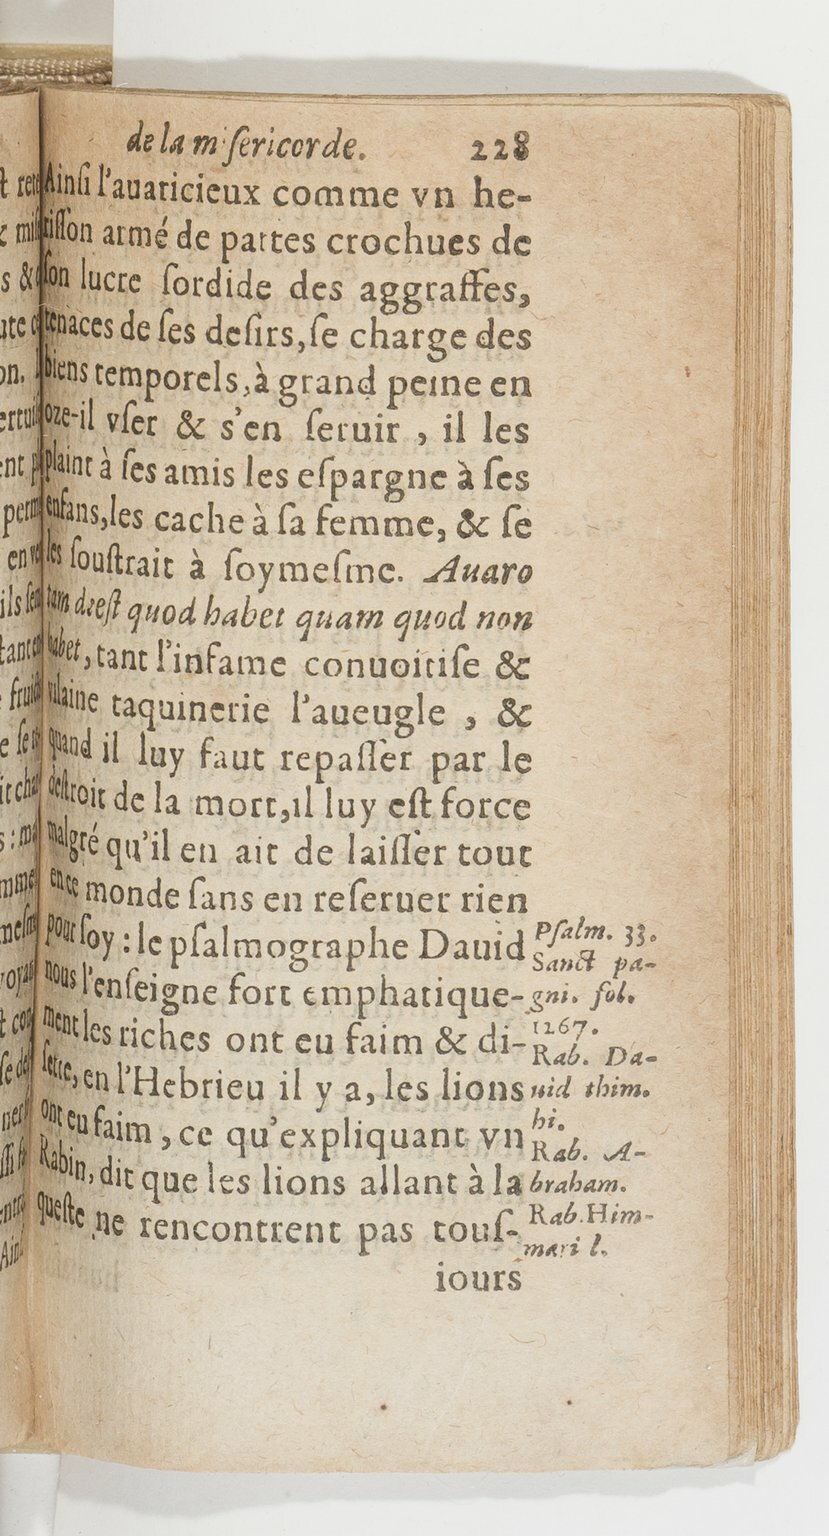 de la miſericorde. 228
Ainſi l'auaricieux comme vn he-
riſſon armé de pattes crochues de
ſon lucre ſordide des aggraffes,
tenaces de ſes deſirs, ſe charge des
biens temporels, à grand peine en
oze-il vſer & s'en ſeruir , il les
plaint à ſes amis les eſpargne à ſes
enfans, les cache à ſa femme, & ſe
les ſouſtrait à ſoymeſme. Auaro
tam deeſt quod habet quam quod non
habet, tant l'infame conuoitiſe &
vilaine taquinerie l'aueugle , &
quand il luy faut repaſſer par le
deſtroit de la mort, il luy eſt force
malgré qu'il en ait de laiſſer tout
en ce monde ſans en reſeruer rien
pour ſoy : le pſalmographe Dauid
nous l'enſeigne fort emphatique-
ment les riches ont eu faim & di-
ſette, en l'Hebrieu il y a, les lions
ont eu faim , ce qu'expliquant vn
Rabin, dit que les lions allant à la
queſte ne rencontrent pas touſ-
iours
Pſalm. 33.
Sanct pa-
gni. fol.
1267.
Rab. Da-
uid thim.
hi.
Rab. A-
braham.
Rab. Him-
mari l.